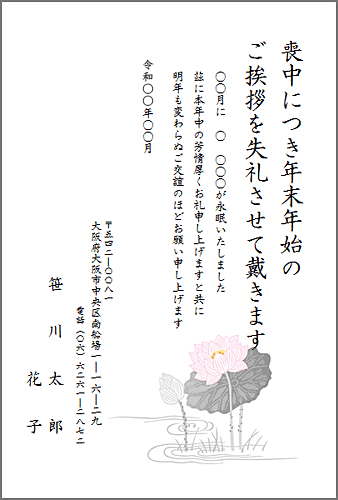 喪中につき年末年始の
ご挨拶を失礼させて戴きます
〇〇月に　〇　〇〇〇が永眠いたしました
茲に本年中の芳情厚くお礼申し上げますと共に
明年も変わらぬご交誼のほどお願い申し上げます
令和〇〇年〇〇月
〒五四二―〇〇八一
大阪府大阪市中央区南船場一―一六―二九
電話（〇六）六二六一―二八七二
笹川　太郎
花子